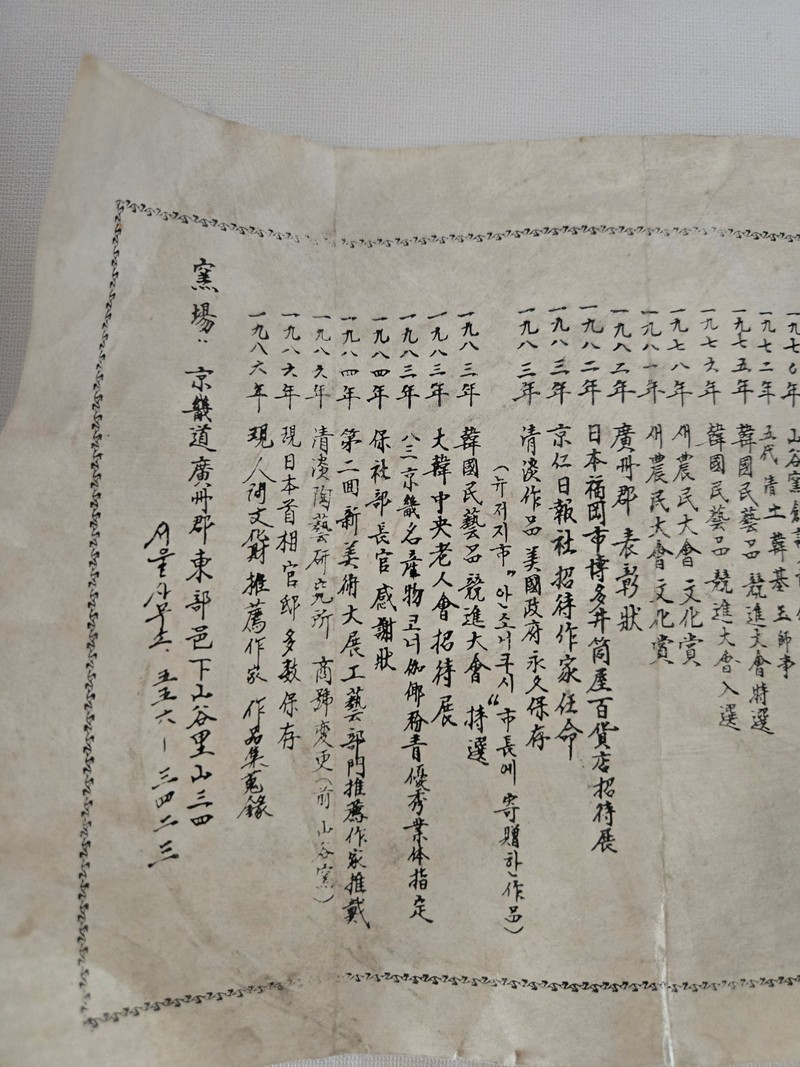 一九七〇年 山谷窯創設
一九七二年 五代 淸土 韓基玉師事
一九七五年 韓國民藝品 競進大會特選
一九七六年 韓國民藝品 競進大會入選
一九七八年 새農民大會 文化賞
一九八一年 새農民大會 文化賞
一九八二年 廣州郡 表彰狀
一九八二年 日本福岡市博多井筒屋百貨店招待展
一九八三年 京仁日報社 招待作家任命
一九八三年 清淡作品 美國政府永久保存
(뉴저지市 "안소니쿠시" 市長에 寄贈한 作品)
一九八三年 韓國民藝品 競進大會 特選
一九八三年 大韓中央老人會招待展
一九八三年 八三京畿名産物 코너 伽倻粉青優秀業体指定
一九八四年 保社部長官 感謝狀
一九八四年 第二回新美術大展工藝部門推薦作家推戴
一九八五年 清淡陶藝研究所 商號変更(前 山谷窯)
一九八六年 現日本首相官邸多数保存
一九八六年 現人間文化財推薦作家 作品集蒐錄
窯場: 京畿道廣州郡東部邑下山谷里山三四
서울사무소. 五五六-三四二三